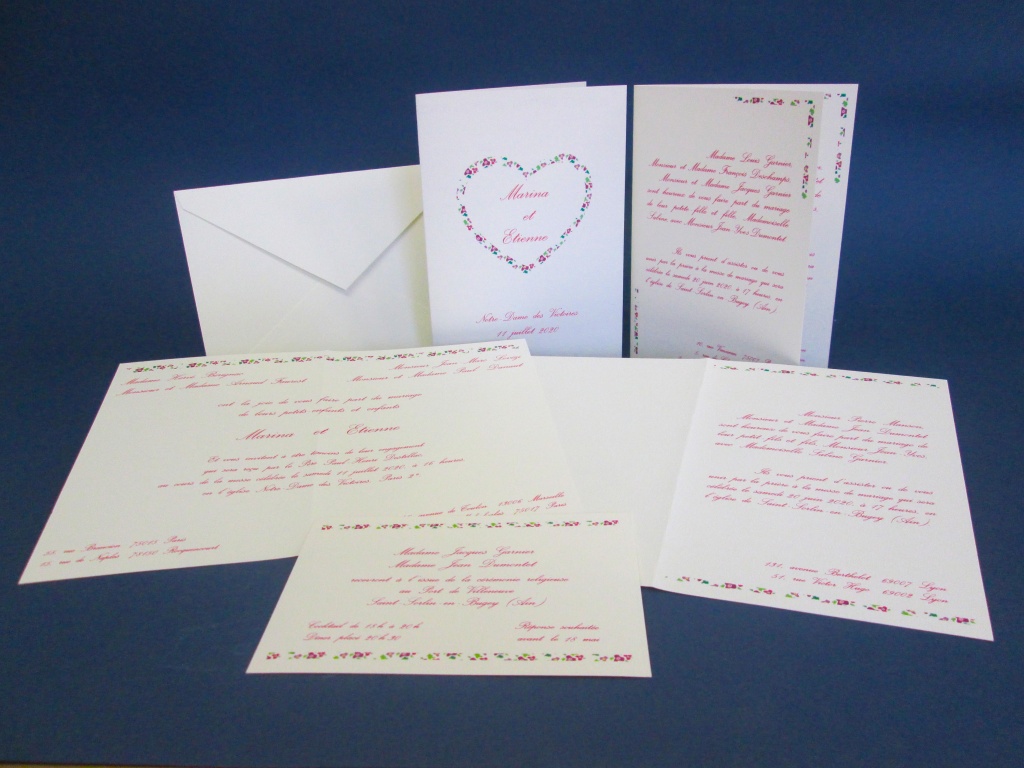 Marina
et
Etienne
Notre Dame des Victoires
11 juillet 2020
Madame Louis Garnier,
Monsieur et Madame François Deschamps,
Monsieur et Madame Jacques Garnier
sont heureux de vous faire part du mariage
de leur petite fille et fille, Mademoiselle
Sabine avec Monsieur Jean Yves Dumontet.
Ils vous prient d'assister ou de vous
unir par la prière à la messe de mariage qui sera
célébrée le samedi 20 juin 2020, à 17 heures, en
l'église de Saint Sorlin en Bugey (Ain).
Madame Henri
Monsieur et Madame Armand
Monsieur Jean Marc
Monsieur et Madame Paul
ont la joie de vous faire part du mariage
de leurs petits enfants et enfants
Marina et Etienne
Et vous invitent à être témoins de leur engagement
qui sera reçu par le Père Paul Henri
au cours de la messe célébrée le samedi 11 juillet 2020, à 16 heures
en l'église Notre Dame des Victoires, Paris 2e
13006 Marseille
75017 Paris
rue 75015 Paris
rue de Naples 78150 Rocquencourt
Madame Jacques Garnier
Madame Jean Dumontet
recevront à l'issue de la cérémonie religieuse
au Port de Villeneuve
Saint Sorlin en Bugey (Ain)
Cocktail de 18 h à 20 h
Diner placé 20 h 30
Réponse souhaitée
avant le 18 mai
Monsieur Pierre
Monsieur et Madame Jean Dumontet
sont heureux de vous faire part du mariage de
leur petit fils et fils, Monsieur Jean Yves,
avec Mademoiselle Sabine Garnier.
Ils vous prient d'assister ou de vous
unir par la prière à la messe de mariage qui sera
célébrée le samedi 20 juin 2020, à 17 heures, en
l'église de Saint Sorlin en Bugey (Ain).
131, avenue Berthelot 69007 Lyon
51, rue Victor Hugo 69002 Lyon